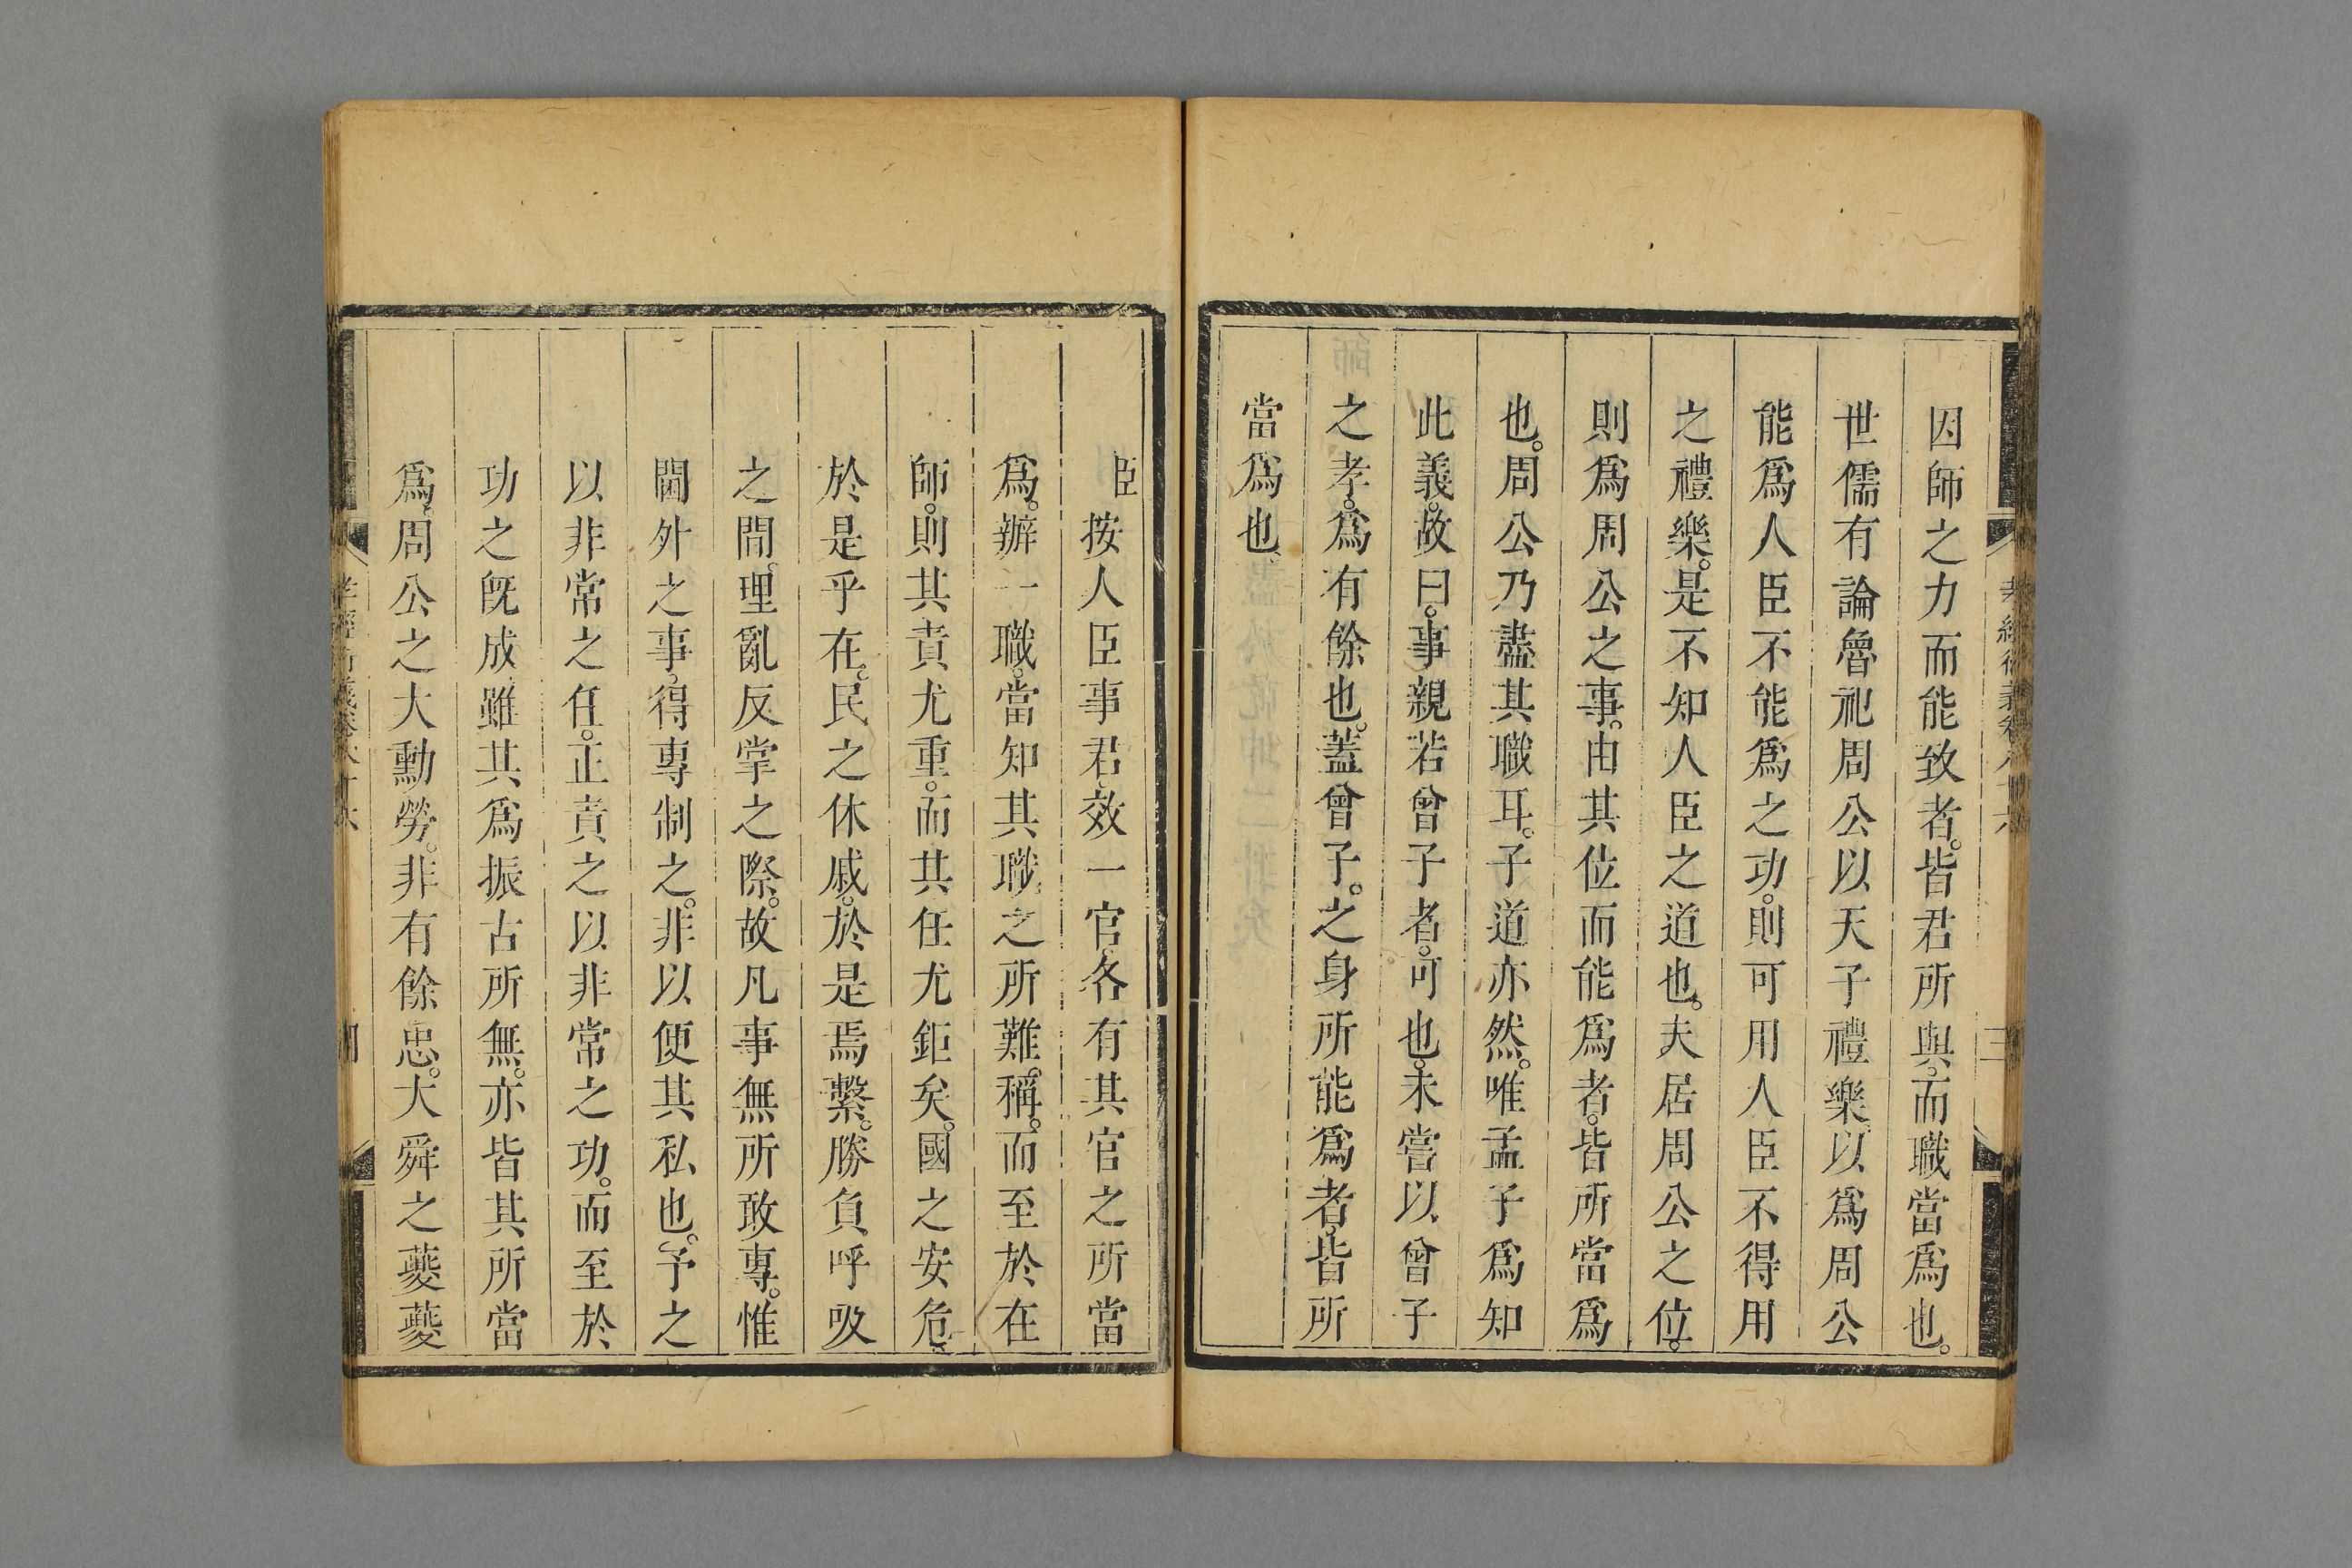 因師之力而能致者。皆君所與。而職當爲也。
世儒有論魯祀周公以天子禮樂。以爲周公
能爲人臣不能爲之功。則可用人臣不得用
之禮樂。是不知人臣之道也。夫居周公之位。
則爲周公之事。由其位而能爲者。皆所當爲
也。周公乃盡其職耳。子道亦然。唯孟子爲知
此義。故曰。事親若曾子者。可也。未嘗以曾子
之孝。爲有餘也。蓋曾子。之身所能爲者。皆所
當爲也。
臣按人臣事君。效一官。各有其官之所當
爲。辦一職。當知其職之所難稱。而至於在
師。則其責尤重。而其任尤鉅矣。國之安危。
於是乎在。民之休戚。於是焉繫。勝負呼吸
之間。理亂反掌之際。故凡事無所敢專。惟
閫外之事。得專制之。非以便其私也。予之
以非常之任。正責之以非常之功。而至於
功之旣成。雖其爲振古所無。亦皆其所當
爲。周公之大勳勞。非有餘忠。大舜之夔夔